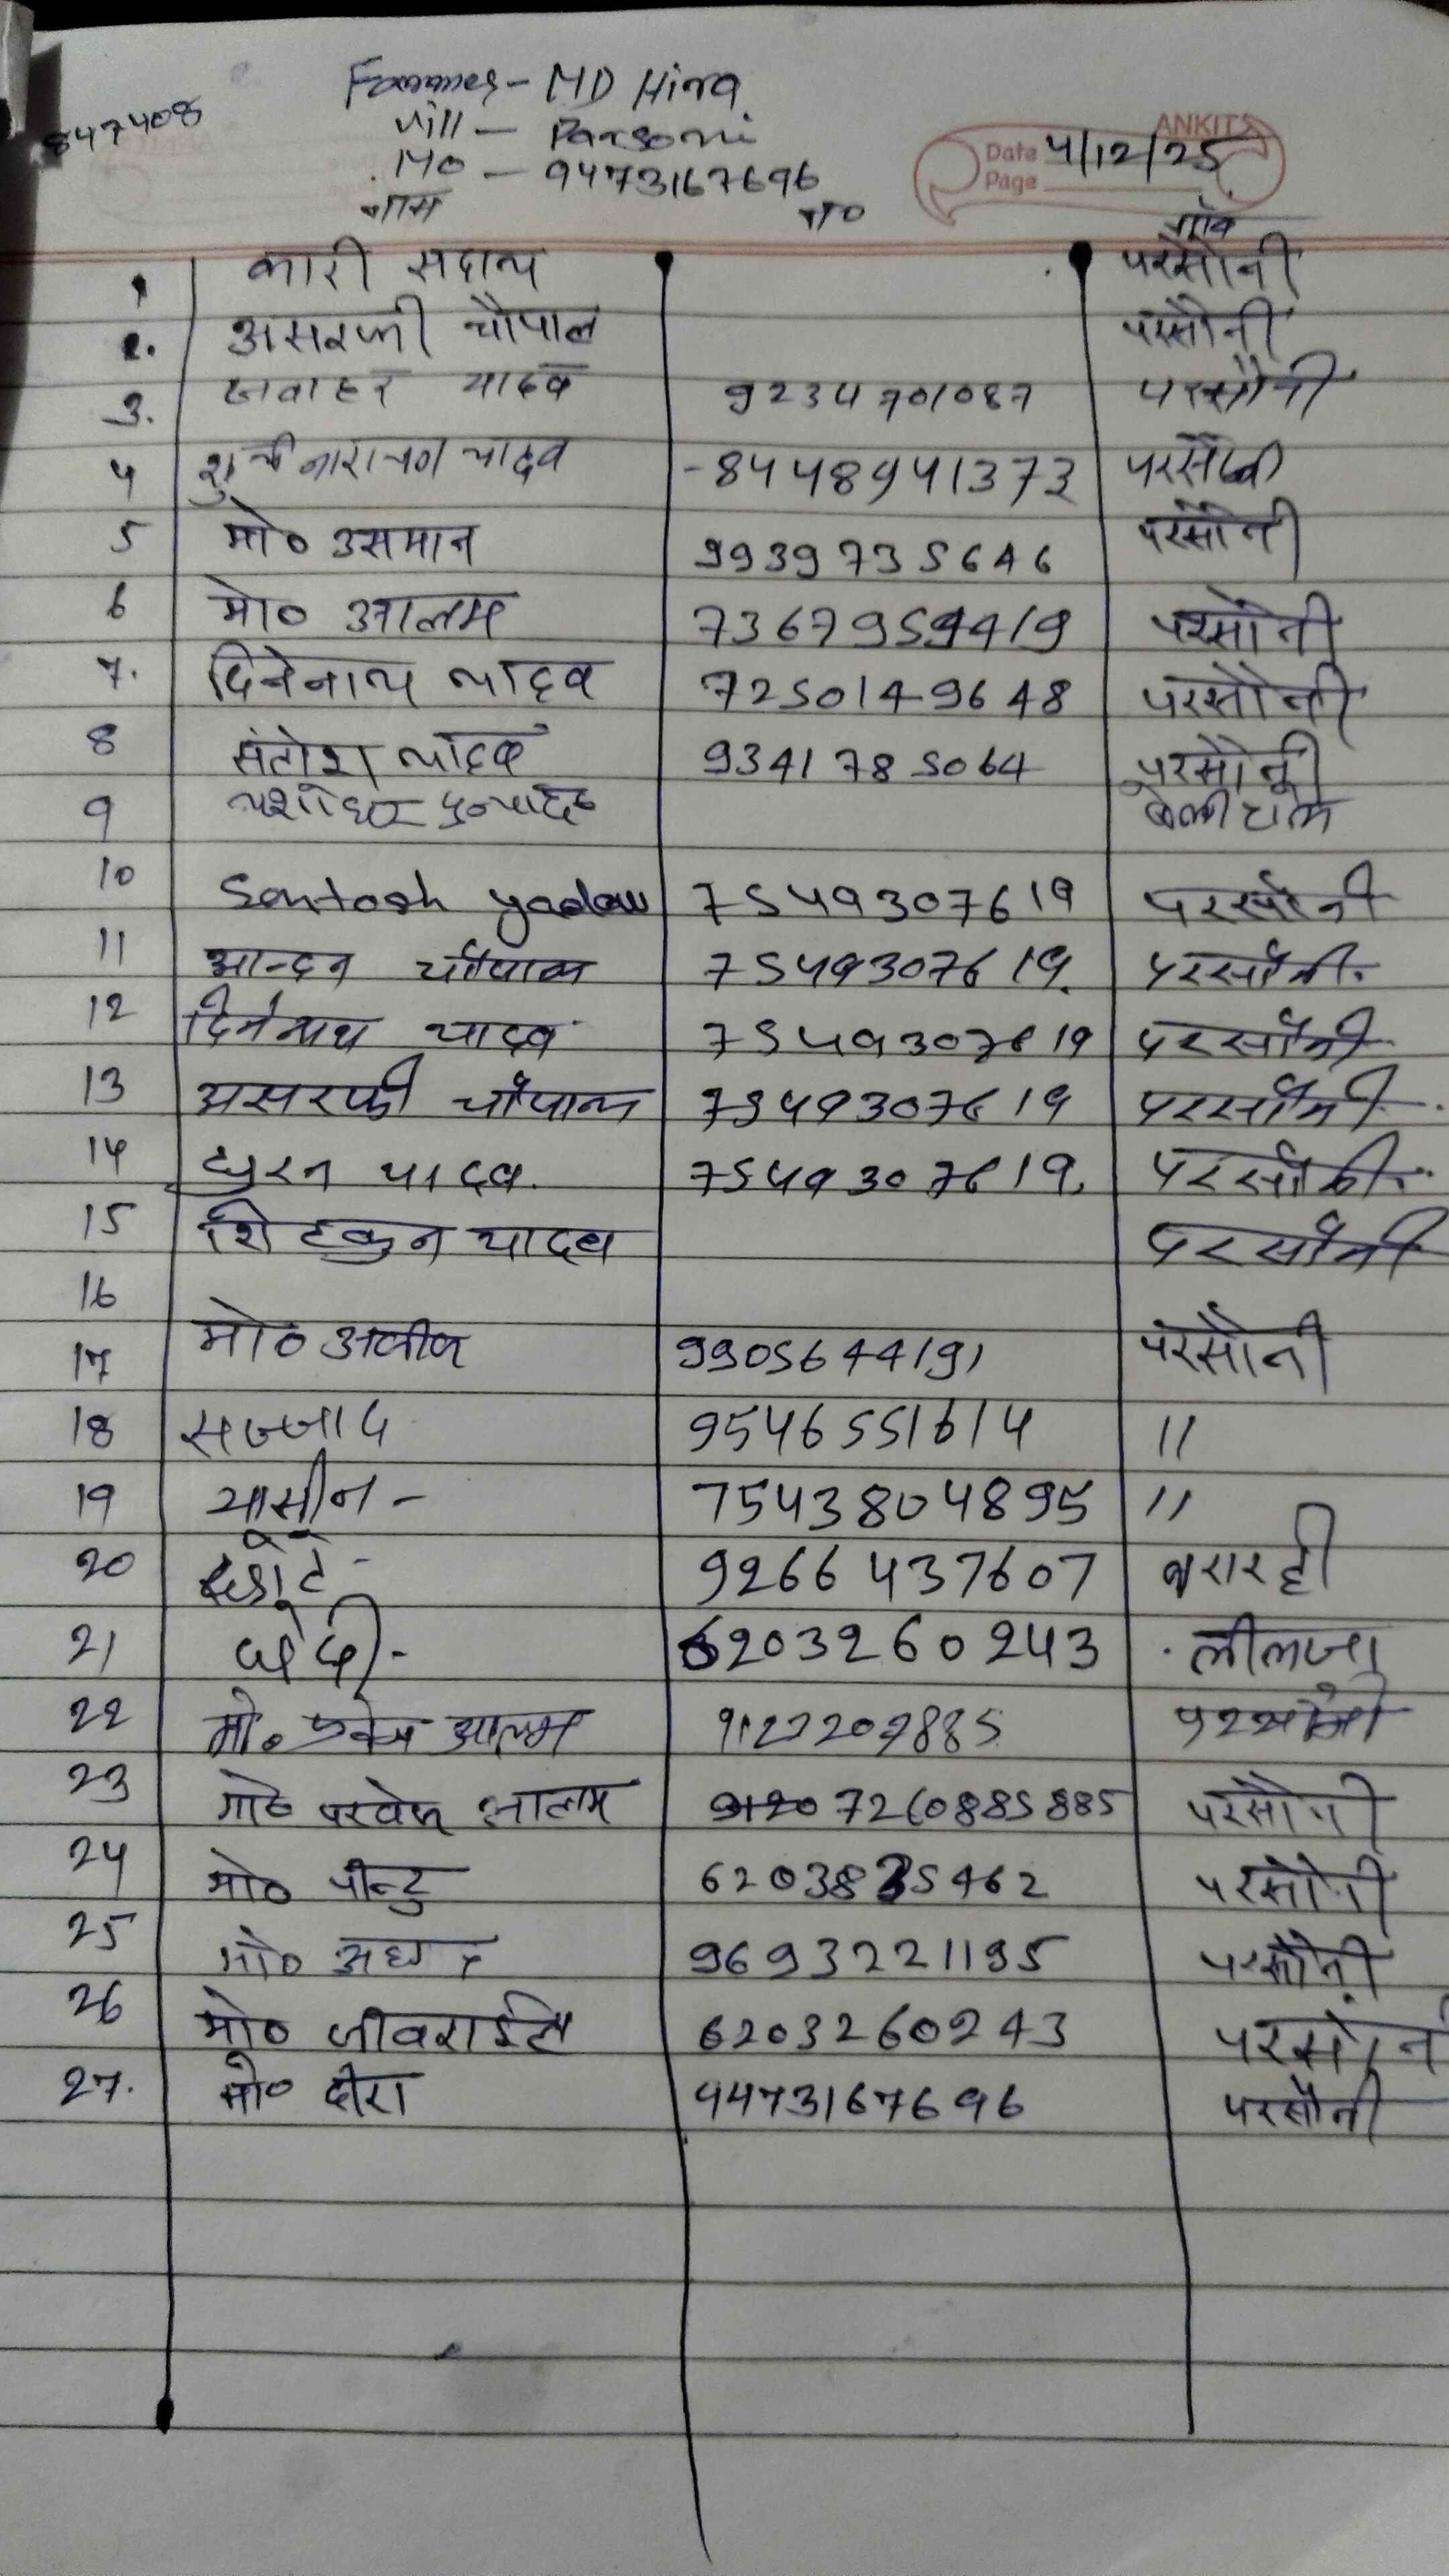 847408
Farmer - MD Hira
vill - Parsoni
Mo - 9473167696
ANKIT
Date 4/12/25
Page
नाम नं० गाँव
1 कारी सदाय परसौनी
2. असरफी चौपाल परसौनी
3. जवाहर यादव 9234701087 परसौनी
4 नारायण यादव - 8448941373 परसौनी
5 मो० उसमान 9939735646 परसौनी
6 मो० आलम परसौनी
7. दिनेनाथ यादव 7250149648 परसौनी
8 संतोश यादव 9341785064 परसौनी
9
10 Santosh yadav 7549307619 परसौनी
11 आन्दन चौपाल 7549307619. परसौनी.
12 दिनेनाथ यादव 7549307619 परसौनी
13 असरफी चौपाल 7549307619 परसौनी
14 यादव. 7549307619, परसौनी.
15 यादव परसौनी
16
17 मो० 9905644191 परसौनी
18 सज्जाद 9546551614 //
19 यासीन - 7543804895 //
20 छोटे - 9266437607 बरारही
21 6203260243 लीलजा
22 मो० आलम परसौनी
23 मो० परवेज आलम 7260885885 परसौनी
24 मो० पीन्टु परसौनी
25 मो० 9693221195 परसौनी
26 मो० 6203260243 परसौनी
27. मो० हीरा 9473167696 परसौनी